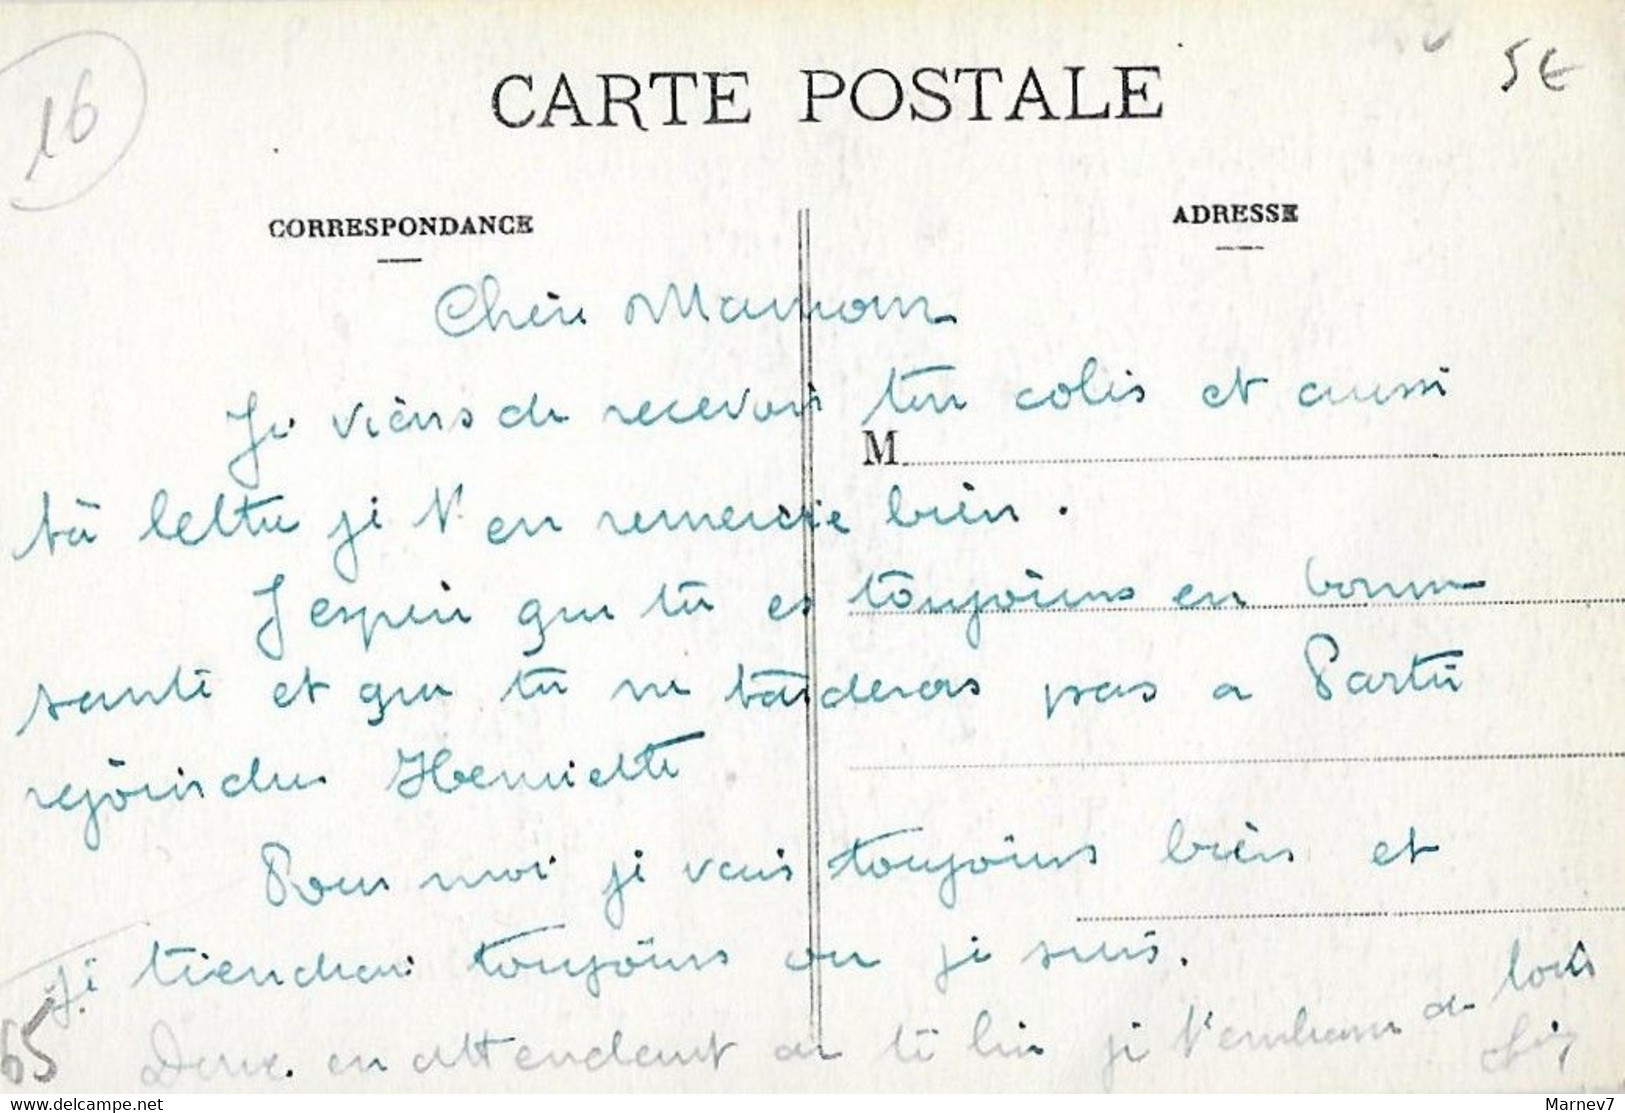 16
5€
CARTE POSTALE
CORRESPONDANCE
ADRESSE
Chère Maman
Je viens de recevoir ton colis et aussi
M
ta lettre je t'en remercie bien.
J'espère que tu es toujours en bonne
santé et que tu ne tarderas pas a Partir
rejoindre Henriette
Pour moi je vais toujours bien et
je tiendrai toujours ou je suis.
Donc. en attendant de te lire je t'embrasse de loin
65
delcampe.net
Marnev7